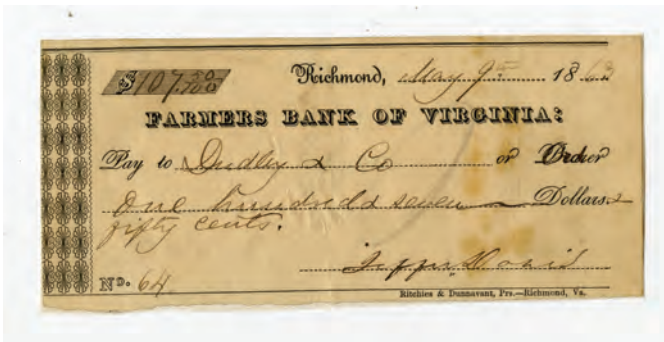 $107.50/100 Richmond, May 9th 1863
FARMERS BANK OF VIRGINIA:
Pay to Dudley & Co or Order
One hundred & seven Dollars &
fifty cents.
Jeffn Davis
No. 64
Ritchies & Dunnavant, Prs.—Richmond, Va.